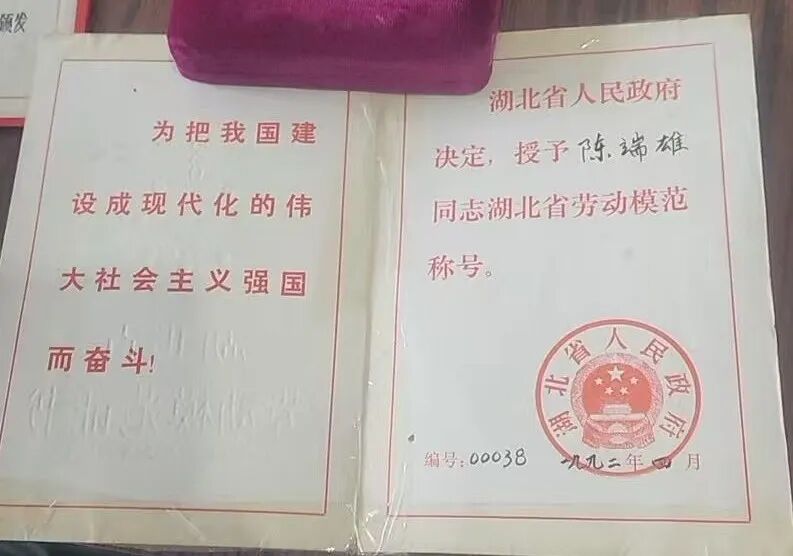 颁发
为把我国建
设成现代化的伟
大社会主义强国
而奋斗!
湖北省人民政府
决定，授予陈端雄
同志湖北省劳动模范
称号。
湖北省人民政府
编号:00038 一九九二年四月